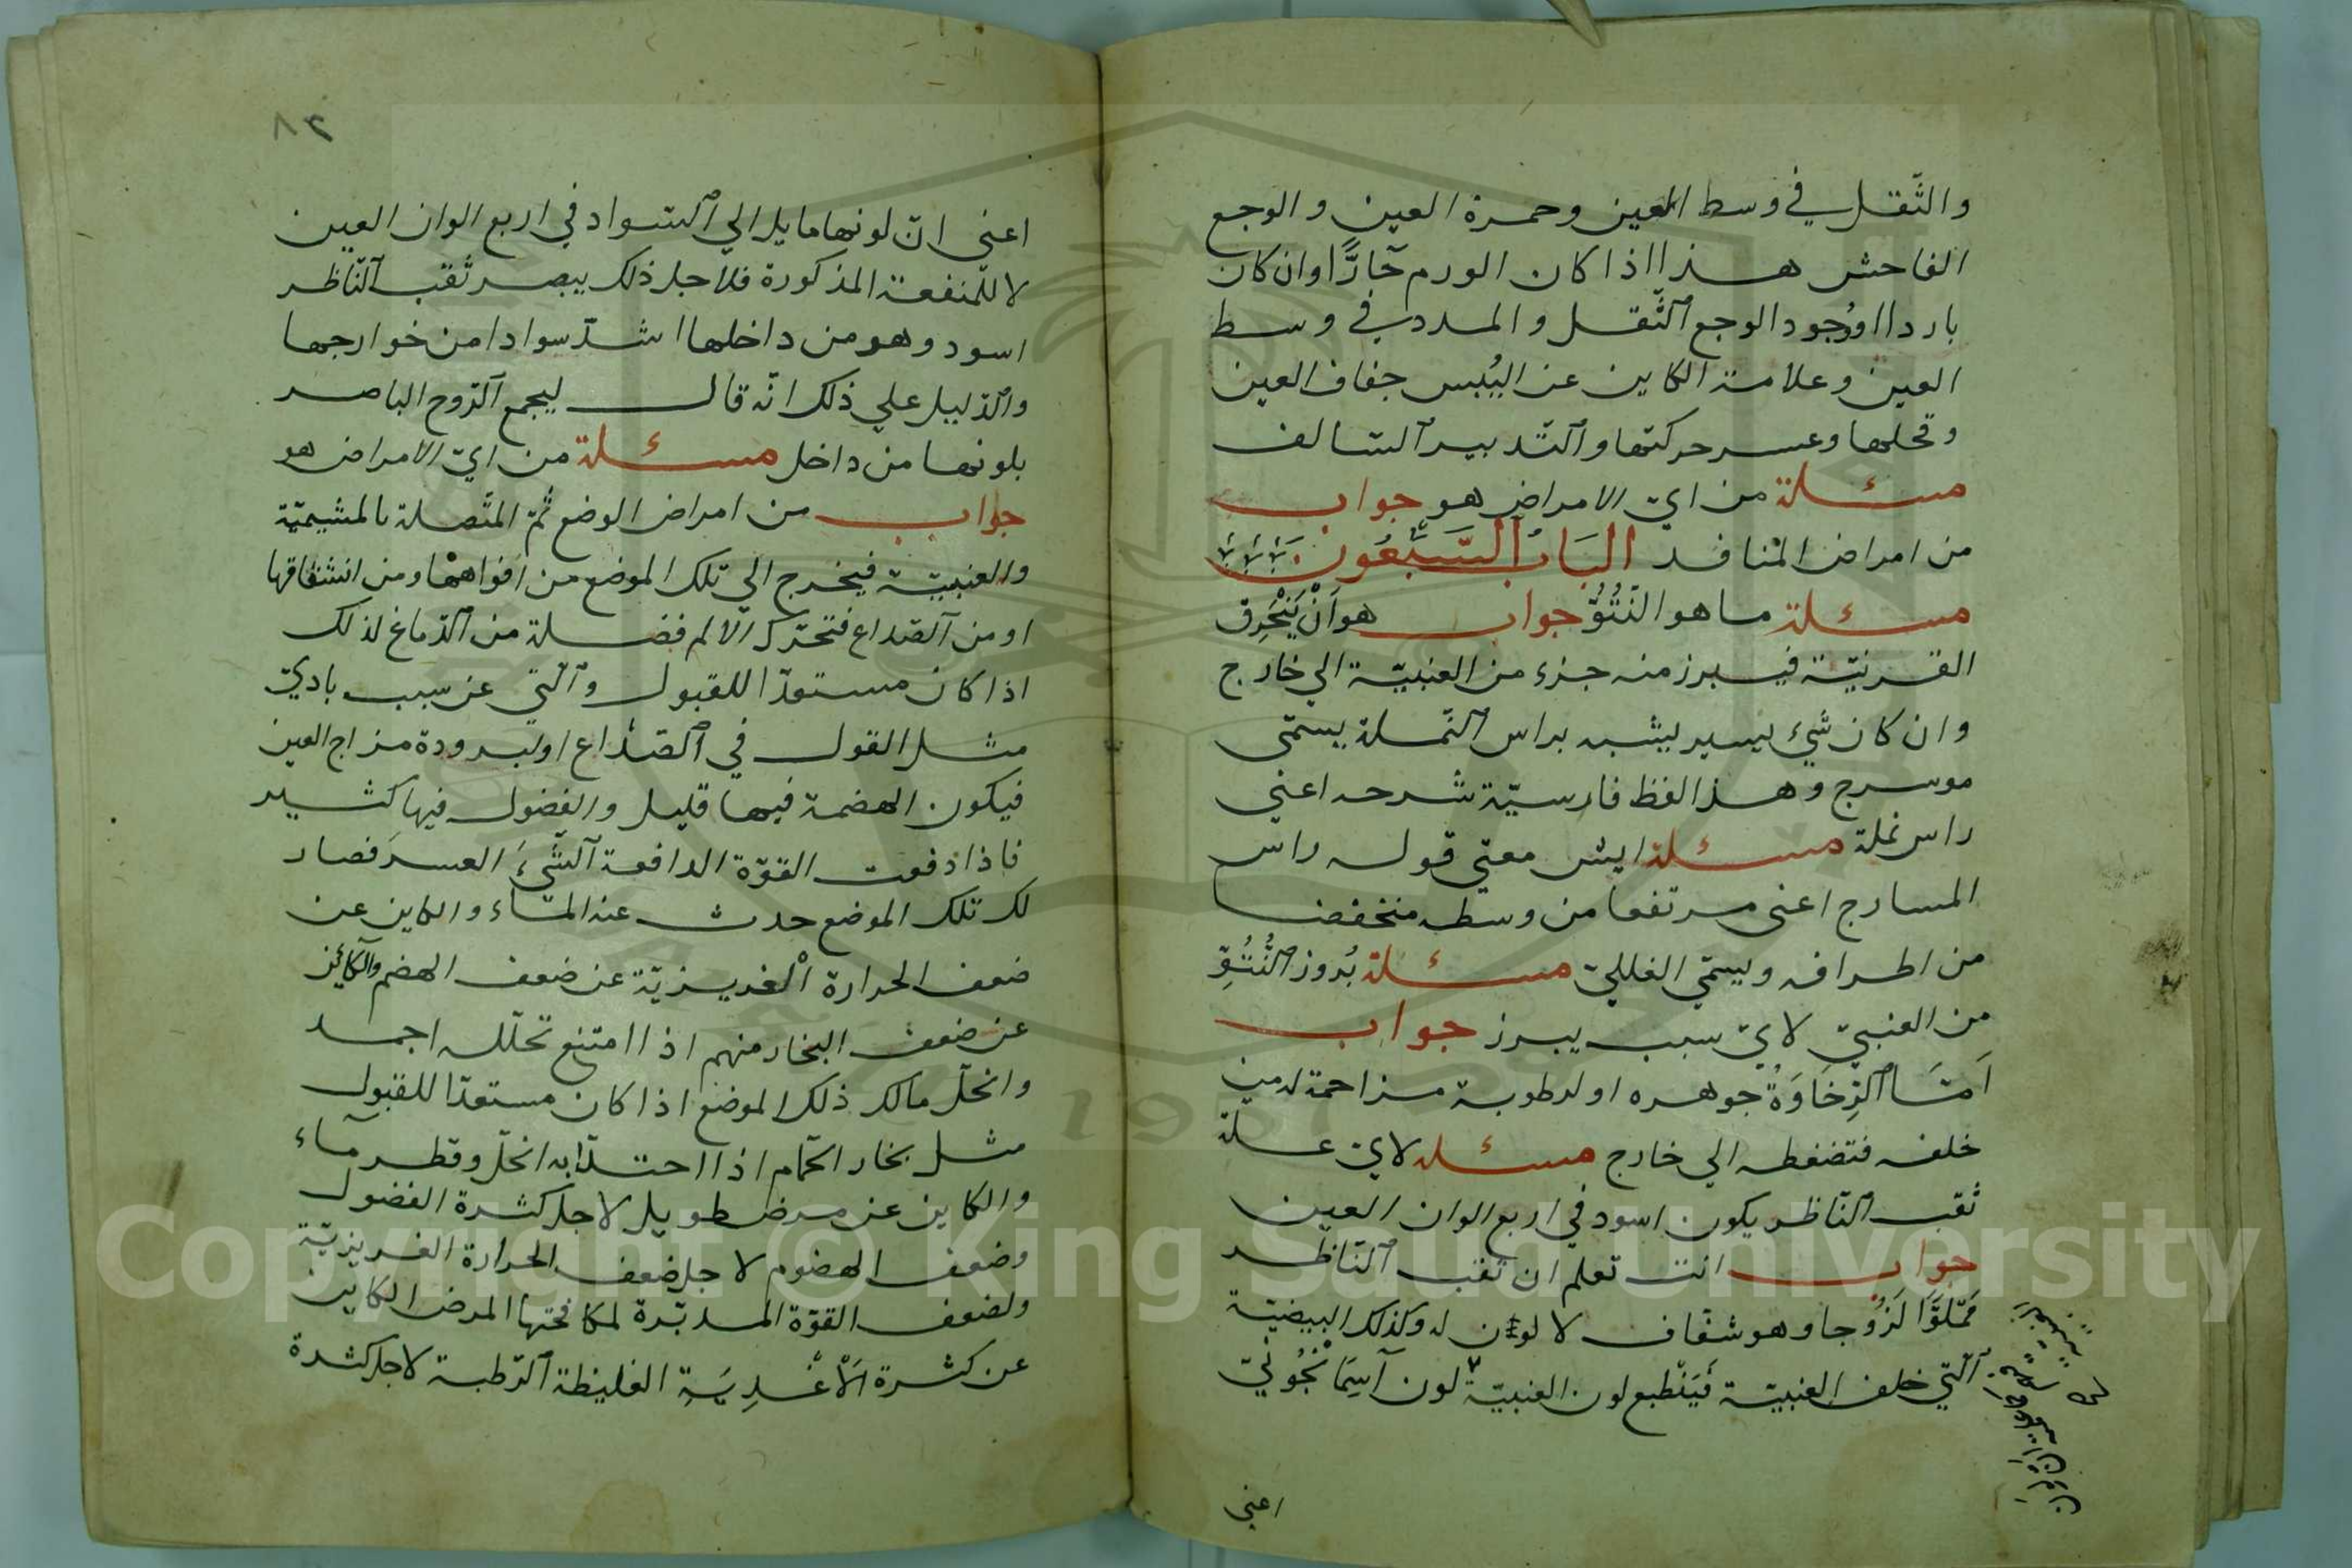 والثّقل في وسط العين وحمرة العين والوجع
الفاحش هذا اذا كان الورم حَارًّا وان كان
باردا اوُجود الوجع الثّقل والمدد في وسط
العين وعلامة الكاين عن اليُبس جفاف العين
وقحلها وعسر حركتها والتّدبير السّالف
مسئلة من ايّ الامراض هو جواب
من امراض المنافد البَابُ السَّبْعُون
مسئلة ما هو النُّتُوُّ جواب هو اَنْ يَنْخَرِق
القرنيّة فيبرز منه جزء من العنبيّة الي خارج
وان كان شيء يسير يشبه براس النّملة يسمّى
موسرج وهذا لفظ فارسيّة شرحه اعني
راس نملة مسئلة ايش معني قوله راس
المسارج اعني مرتفعا من وسطه منخفضا
من اطرافه ويسمّي الفللي مسئلة بُروز النُّتُوِّ
من العنبيّ لايّ سبب يبرز جواب
اَمَّا الرِّخَاوَةُ جوهره او لرطوبة مزاحمة له من
خلفه فتضغطه الي خارج مسئله لايّ علّة
ثقب النّاظر يكون اسود في اربع الوان العين
جواب انت تعلم ان ثقب النّاظر
مَمّلوَّا لَزُوجا وهو شفّاف لا لون له وكذلك البيضيّة
الّتي خلف العنبيّة فَيَنْطبع لون العنبيّة لون آسِمَانْجُونيّ
اعني
٢٨
اعني انّ لونها مايل الي السّواد في اربع الوان العين
لا للّمنفعة المذكورة فلاجل ذلك يبصر ثَقب النّاظر
اسود وهو من داخلها اشدّ سوادا من خوارجها
والدّليل علي ذلك انّه قال ليجمع الرّوح الباصر
بلونها من داخل مسئلة من ايّ الامراض هو
جواب من امراض الوضع ثُمّ المتّصلة بالمشيميّة
والعنبيّة فيخرج الي تلك الموضع من افواهها ومن انشقاقها
او من الصّداع فتحرّك الالم فضلة من الدّماغ لذلك
اذا كان مستعدّا للقبول والّتي عن سبب باديّ
مثل القول في الصّداع او لبرودة مزاج العين
فيكون الهضمة فيها قليل والفضول فيها كثير
فاذا دفعت القوّة الدافعة الشّيءَ العسرَ فصار
لك تلك الموضع حدث عنه المآء والكاين عن
ضعف الحرارة الْغريزيّة عن ضعف الهضم والكائن
عن ضعف البخار منهم اذا امتنع تحلّله اجمد
وانحلّ مالك ذلك الموضع اذا كان مستعدّا للقبول
مثل بخار الحمّام اذا احتدّ ابه انحلّ وقطر مآء
والكاين عن مرض طويل لاجل كثرة الفضول
وضعف الهضوم لاجل ضعف الحرارة الغريزيّة
ولضعف القوّة المدبّرة لمكافحتها المرض الكاين
عن كثرة الْاَغْدِيَةِ الغليظة الرّطبة لاجل كثرة